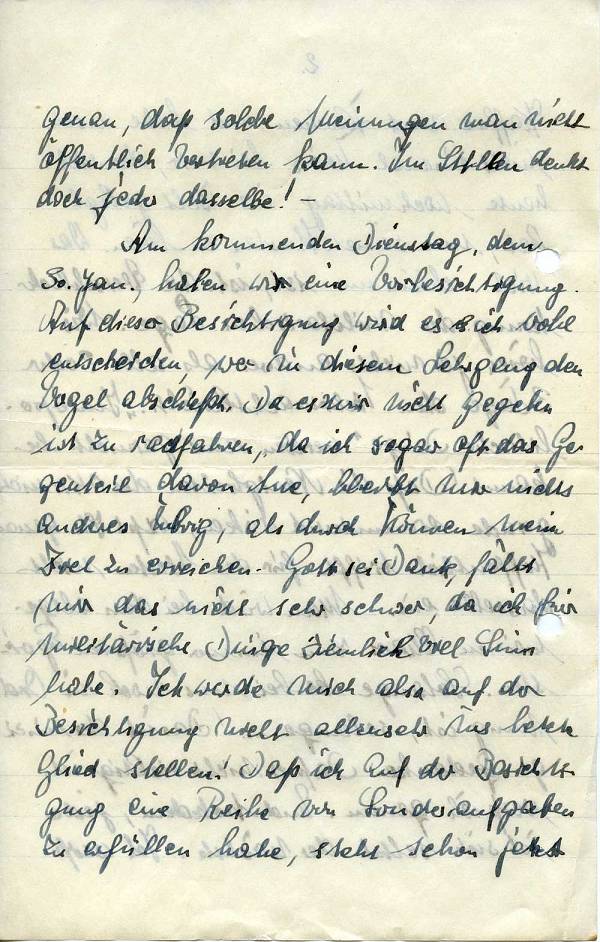 2.
genau, daß solche Meinungen man nicht
öffentlich vertreten kann. Im Stillen denkt
doch jeder dasselbe! –
Am kommenden Dienstag, dem
30. Jan., haben wir eine Vorbesichtigung.
Auf dieser Besichtigung wird es sich wohl
entscheiden, wer in diesem Lehrgang den
Vogel abschießt. Da es mir nicht gegeben
ist zu radfahren, da ich sogar oft das Ge-
genteil davon tue, bleibt mir nichts
anderes übrig, als durch Können mein
Ziel zu erreichen. Gott sei Dank, fällt
mir das nicht sehr schwer, da ich für
militärische Dinge ziemlich viel Sinn
habe. Ich werde mich also auf der
Besichtigung nicht allzusehr ins letzte
Glied stellen! Daß ich auf der Besichti-
gung eine Reihe von Sonderaufgaben
zu erfüllen habe, steht schon jetzt